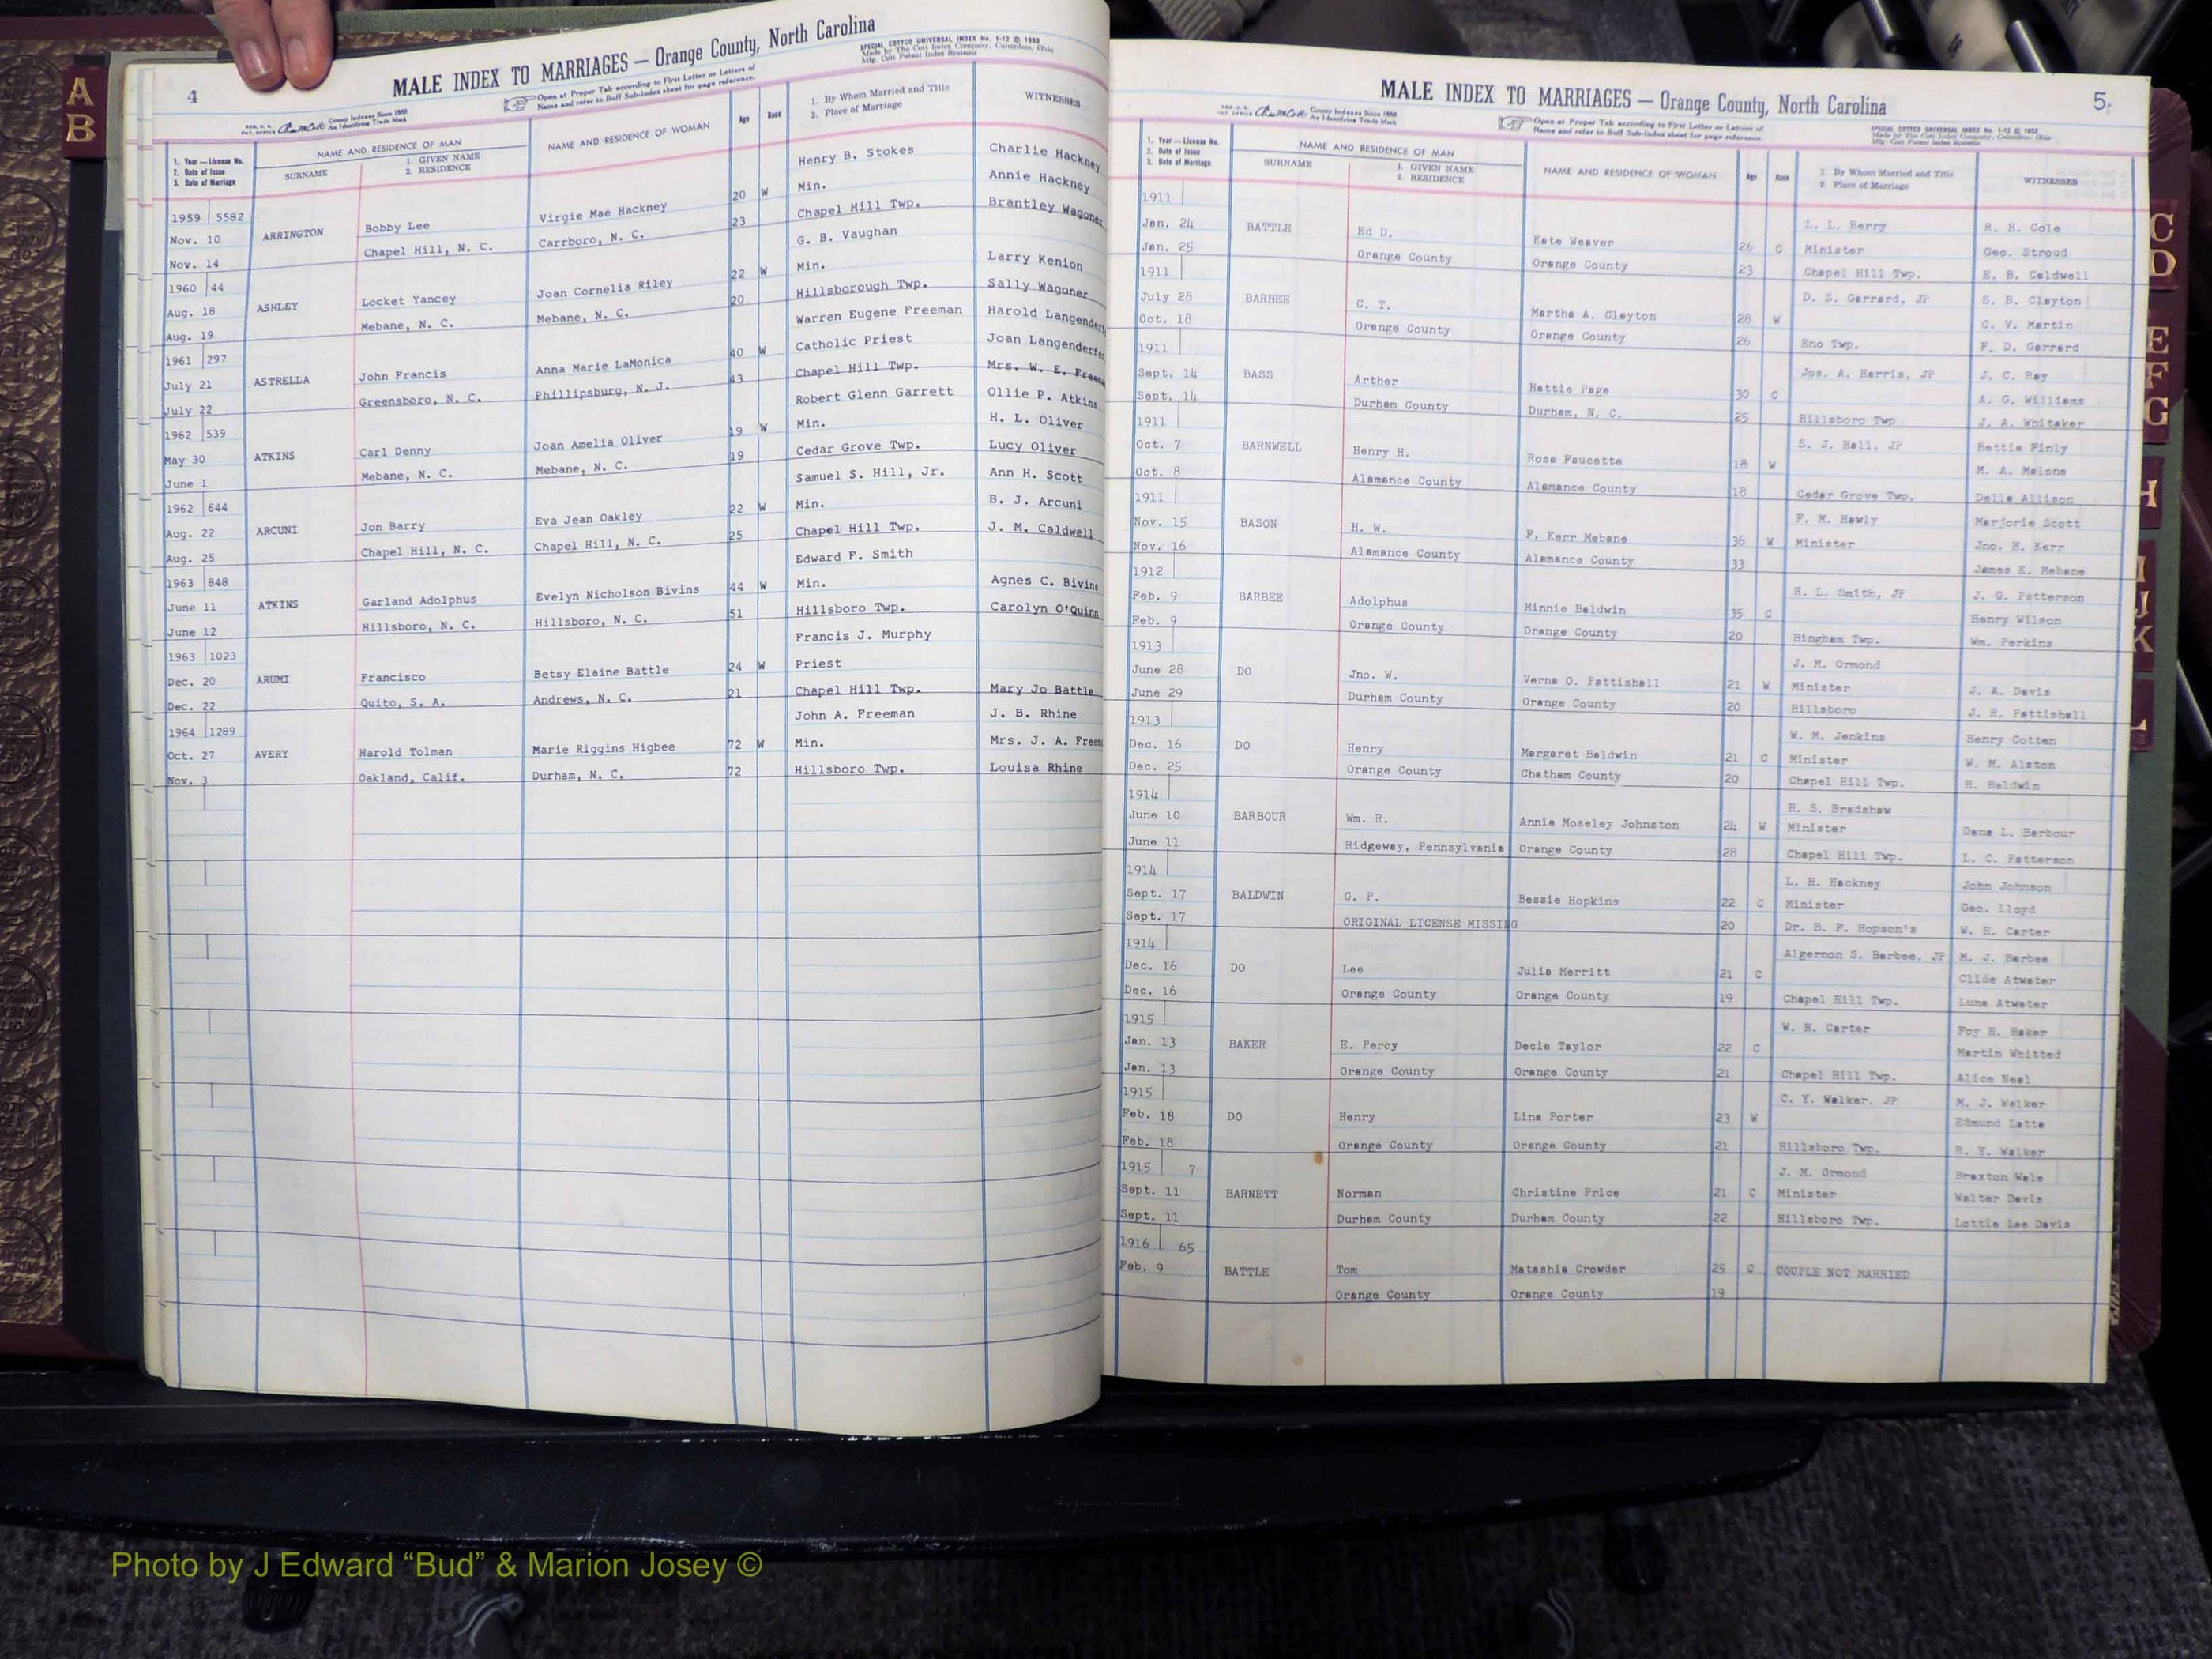 A
B
4
MALE INDEX TO MARRIAGES — Orange County, North Carolina
SPECIAL COTTCO UNIVERSAL INDEX No. 1-12 © 1952
Made by The Cott Index Company, Columbus, Ohio
Mfg. Cott Patent Index Systems
County Indexes Since 1888
An Identifying Trade Mark
Open at Proper Tab according to First Letter or Letters of
Name and refer to Buff Sub-Index sheet for page reference.
1. Year — License No.
2. Date of Issue
3. Date of Marriage
NAME AND RESIDENCE OF MAN
SURNAME
1. GIVEN NAME
2. RESIDENCE
NAME AND RESIDENCE OF WOMAN
Age
Race
1. By Whom Married and Title
2. Place of Marriage
WITNESSES
1959 5582 Henry B. Stokes Charlie Hackney
Nov. 10 ARRINGTON Bobby Lee Virgie Mae Hackney 20 W Min. Annie Hackney
Nov. 14 Chapel Hill, N. C. Carrboro, N. C. 23 Chapel Hill Twp. Brantley Wagoner
1960 44 G. B. Vaughan Larry Kenion
Aug. 18 ASHLEY Locket Yancey Joan Cornelia Riley 22 W Min.
Aug. 19 Mebane, N. C. Mebane, N. C. 20 Hillsborough Twp. Sally Wagoner
1961 297 Warren Eugene Freeman Harold
July 21 ASTRELLA John Francis Anna Marie LaMonica 40 W Catholic Priest Joan
July 22 Greensboro, N. C. Phillipsburg, N. J. 43 Chapel Hill Twp. Mrs. W. E.
1962 539 Robert Glenn Garrett Ollie P. Atkins
May 30 ATKINS Carl Denny Joan Amelia Oliver 19 W Min. H. L. Oliver
June 1 Mebane, N. C. Mebane, N. C. 19 Cedar Grove Twp. Lucy Oliver
1962 644 Samuel S. Hill, Jr. Ann H. Scott
Aug. 22 ARCUNI Jon Barry Eva Jean Oakley 22 W Min. B. J. Arcuni
Aug. 25 Chapel Hill, N. C. Chapel Hill, N. C. 25 Chapel Hill Twp. J. M. Caldwell
1963 848 Edward F. Smith
June 11 ATKINS Garland Adolphus Evelyn Nicholson Bivins 44 W Min. Agnes C. Bivins
June 12 Hillsboro, N. C. Hillsboro, N. C. 51 Hillsboro Twp. Carolyn O'Quinn
1963 1023 Francis J. Murphy
Dec. 20 ARUMI Francisco Betsy Elaine Battle 24 W Priest
Dec. 22 Quito, S. A. Andrews, N. C. 21 Chapel Hill Twp. Mary Jo Battle
1964 1289 John A. Freeman J. B. Rhine
Oct. 27 AVERY Harold Tolman Marie Riggins Higbee 72 W Min. Mrs. J. A.
Nov. 3 Oakland, Calif. Durham, N. C. 72 Hillsboro Twp. Louisa Rhine
MALE INDEX TO MARRIAGES — Orange County, North Carolina
5
County Indexes Since 1888
An Identifying Trade Mark
Open at Proper Tab according to First Letter or Letters of
Name and refer to Buff Sub-Index sheet for page reference.
SPECIAL COTTCO UNIVERSAL INDEX No. 1-12 © 1952
Made by The Cott Index Company, Columbus, Ohio
Mfg. Cott Patent Index Systems
1. Year — License No.
2. Date of Issue
3. Date of Marriage
NAME AND RESIDENCE OF MAN
SURNAME
1. GIVEN NAME
2. RESIDENCE
NAME AND RESIDENCE OF WOMAN
Age
Race
1. By Whom Married and Title
2. Place of Marriage
WITNESSES
1911 L. L. Berry R. H. Cole
Jan. 24 BATTLE Ed D. Kate Weaver 26 C Minister Geo. Stroud
Jan. 25 Orange County Orange County 23 Chapel Hill Twp. E. B. Caldwell
1911 D. S. Garrard, JP S. B. Clayton
July 28 BARBEE C. T. Martha A. Clayton 28 W C. V. Martin
Oct. 18 Orange County Orange County 26 Eno Twp. F. D. Garrard
1911 Jos. A. Harris, JP J. C. Ray
Sept. 14 BASS Arther Hattie Page 30 C A. G. Williams
Sept. 14 Durham County Durham, N. C. 25 Hillsboro Twp J. A. Whitaker
1911 S. J. Hall, JP Bettie Finly
Oct. 7 BARNWELL Henry H. Rosa Faucette 18 W M. A. Malone
Oct. 8 Alamance County Alamance County 18 Cedar Grove Twp. Della Allison
1911 F. M. Hawly Marjorie Scott
Nov. 15 BASON H. W. F. Kerr Mebane 36 W Minister Jno. H. Kerr
Nov. 16 Alamance County Alamance County 33 James K. Mebane
1912 R. L. Smith, JP J. G. Patterson
Feb. 9 BARBEE Adolphus Minnie Baldwin 35 C Henry Wilson
Feb. 9 Orange County Orange County 20 Bingham Twp. Wm. Perkins
1913 J. M. Ormond
June 28 DO Jno. W. Verna O. Pattishall 21 W Minister J. A. Davis
June 29 Durham County Orange County 20 Hillsboro J. R. Pattishall
1913 W. M. Jenkins Henry Cotten
Dec. 16 DO Henry Margaret Baldwin 21 C Minister W. M. Alston
Dec. 25 Orange County Chatham County 20 Chapel Hill Twp. H. Baldwin
1914 R. S. Bradshaw
June 10 BARBOUR Wm. R. Annie Moseley Johnston 24 W Minister Dana L. Barbour
June 11 Ridgeway, Pennsylvania Orange County 28 Chapel Hill Twp. L. C. Patterson
1914 L. H. Hackney John Johnson
Sept. 17 BALDWIN G. P. Bessie Hopkins 22 C Minister Geo. Lloyd
Sept. 17 ORIGINAL LICENSE MISSING 20 Dr. B. F. Hopson's W. H. Carter
1914 Algernon S. Barbee, JP M. J. Barbee
Dec. 16 DO Lee Julia Merritt 21 C Clide Atwater
Dec. 16 Orange County Orange County 19 Chapel Hill Twp. Luna Atwater
1915 W. H. Carter Foy H. Baker
Jan. 13 BAKER E. Percy Decie Taylor 22 C Martin Whitted
Jan. 13 Orange County Orange County 21 Chapel Hill Twp. Alice Neal
1915 C. Y. Walker, JP M. J. Walker
Feb. 18 DO Henry Lina Porter 23 W Edmund Latta
Feb. 18 Orange County Orange County 21 Hillsboro Twp. R. Y. Walker
1915 7 J. M. Ormond Braxton Wale
Sept. 11 BARNETT Norman Christine Price 21 C Minister Walter Davis
Sept. 11 Durham County Durham County 22 Hillsboro Twp. Lottie Lee Davis
1916 65
Feb. 9 BATTLE Tom Matashia Crowder 25 C COUPLE NOT MARRIED
Orange County Orange County 19
C
D
E
F
G
H
I
J
K
L
Photo by J Edward “Bud” & Marion Josey ©